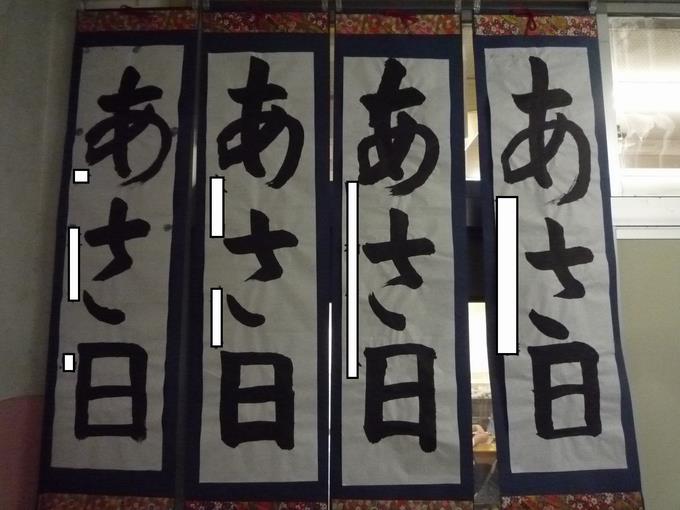 あさ日
あさ日
あさ日
あさ日